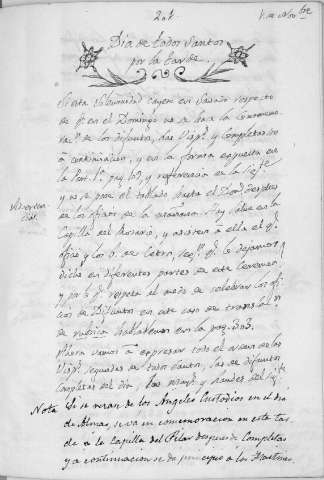 201.
1. de Nov.bre
Dia de todos Santos
por la tarde.
Si esta solemnidad cayere en Sabado respecto
de q.e en el Domingo no se hará la Conmemo
de los difuntos, dos Visp.s y Completas
á continuacion, y en la forma expuesta en
la y referencia en la
y no se pone el tablado hasta el Dom.o despues
Adverten
cia.
en los oficios de la mañana. Hay Salve en la
Capilla del Rosario, y asisten á ella el q.e
oficio, y los de Cetro, seg.n q.e lo dejamos
dicho en diferentes partes de este Ceremon.l
y por lo q.e respeta al modo de celebrar los ofi
cios de Difuntos en este caso de translac.n
de rubrica hablaremos en la pag.
Ahora vamos á expresar todo el orden de las
Visp.s segundas de todos Santos, las de difuntos
Completas del dia, los mayt.s y Laudes del sig.te
Nota Si se rezan de los Angeles Custodios en el dia
de Almas, se va en comemoracion en esta tar
de a la Capilla del Pilar despues de Completas
y a continuacion se da principio a los Maitines.